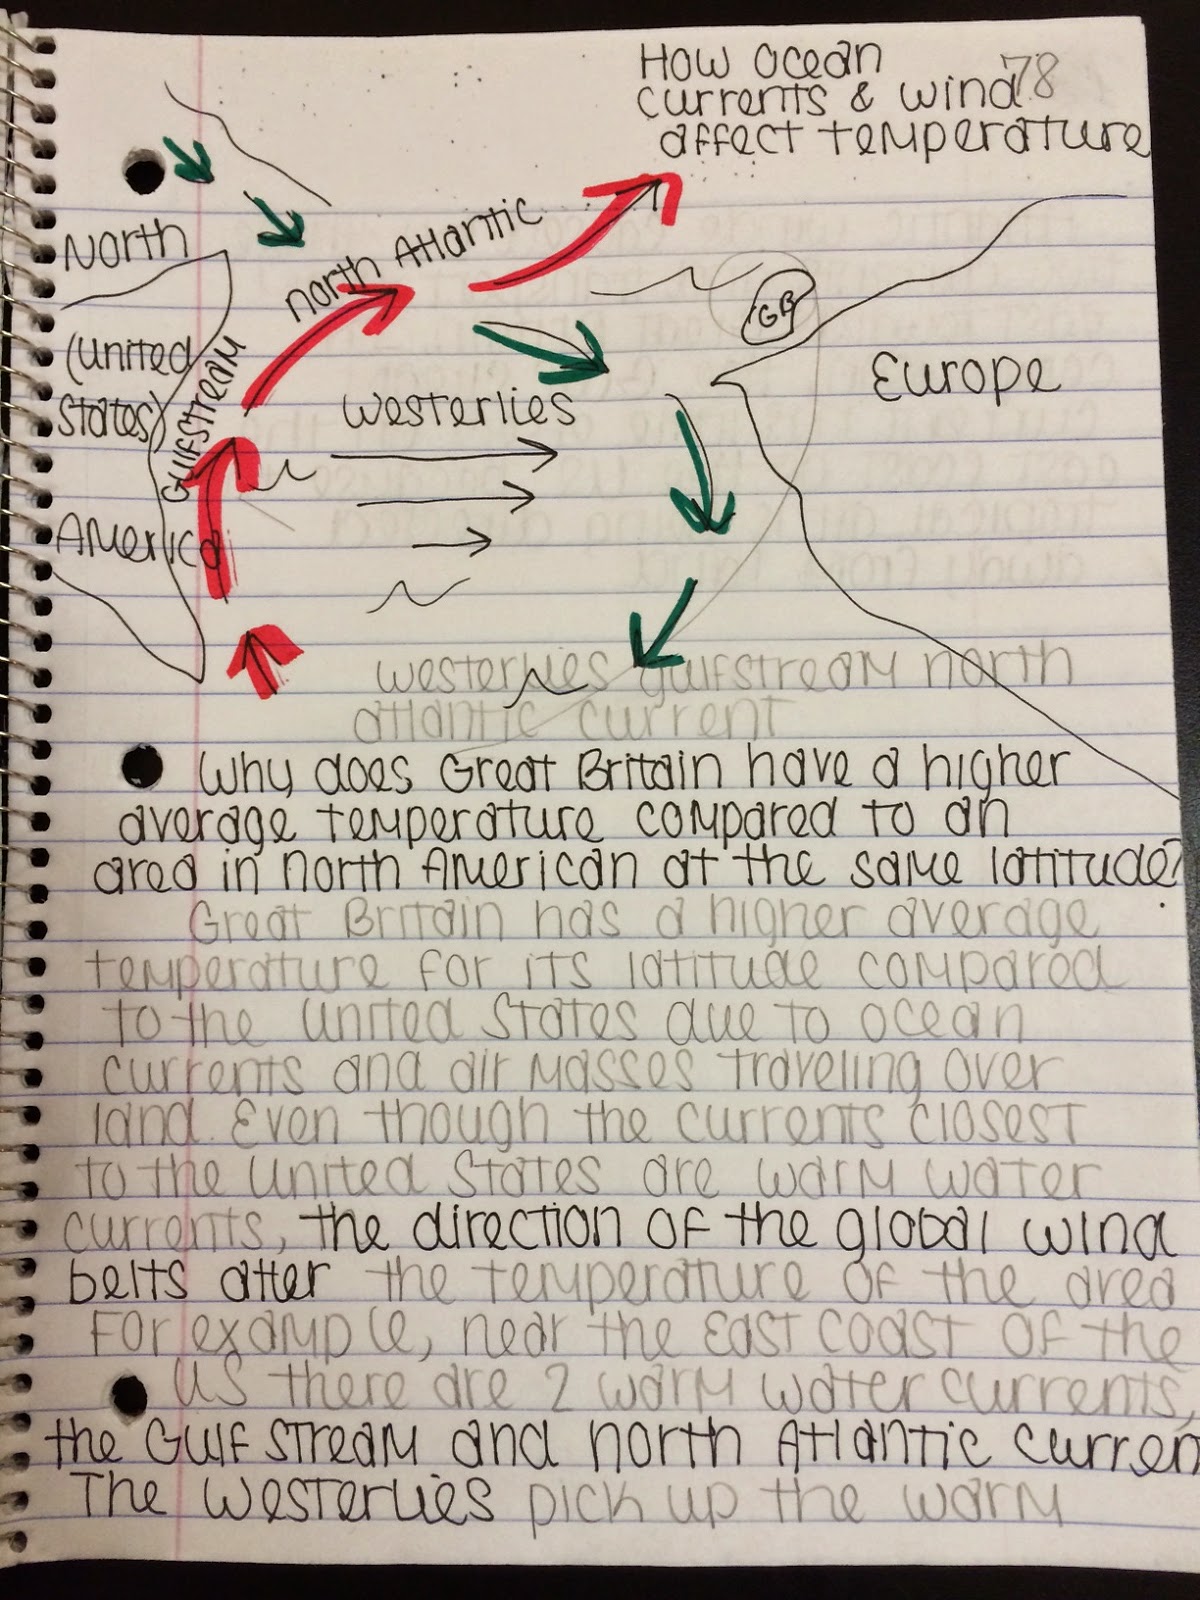 How Ocean
currents & wind
affect temperature
78
North
(United
States)
America
Gulfstream
North Atlantic
Westerlies
GB
Europe
Westerlies gulfstream north
atlantic current
Why does Great Britain have a higher
average temperature compared to an
area in North American at the same latitude?
Great Britain has a higher average
temperature for its latitude compared
to the United States due to ocean
currents and air masses traveling over
land. Even though the currents closest
to the United States are warm water
currents, the direction of the global wind
belts alter the temperature of the area
For example, near the East coast of the
US there are 2 warm water currents,
the Gulf Stream and North Atlantic Curren
The Westerlies pick up the warm